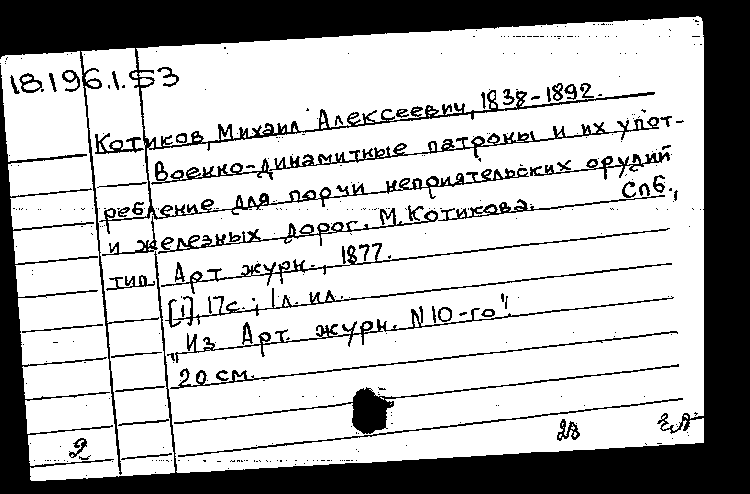 18.196.1.53
Котиков, Михаил Алексеевич, 1838-1892.
Военно-динамитные патроны и их упот-
ребление для порчи неприятельских орудий
и железных дорог. М. Котикова. Спб.,
тип. Арт. журн., 1877.
[1], 17с.; 1л. ил.
"Из Арт. журн. N10-го".
20 см.
2